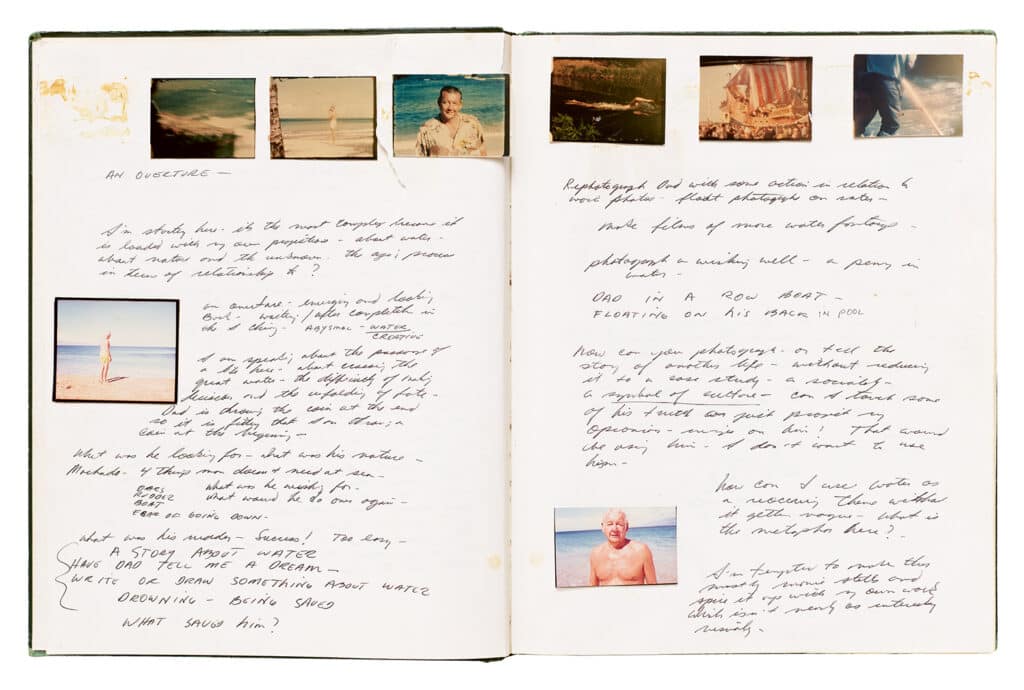 AN OVERTURE —
I'm starting here - it's the most complex because it
is loaded with my own projections - about water -
about nature and the unknown. the aging process
in terms of relationship to ?
an overture - emerging and looking
Back - waiting / after completion in
the I Ching - / ABYSMAL - WATER
CREATIVE
I am speaking about the passage of
a life here - about crossing the
great water - the difficulty of making
decisions and the unfolding of fate -
Dad is throwing the coin at the end
so it is fitting that I am throwing a
coin at the beginning -
What was he looking for - what was his nature -
Machado - 4 things man doesn't need at sea -
OARS what was he wishing for -
RUDDER what would he do over again -
BOAT
FEAR OF GOING DOWN -
what was his - Success! Too easy -
A STORY ABOUT WATER
HAVE DAD TELL ME A DREAM -
WRITE OR DRAW SOMETHING ABOUT WATER
DROWNING - BEING SAVED
WHAT SAVED him?
Rephotograph Dad with some action in relation to
work photos - float photograph on water -
make films of more water footage -
photograph a wishing well - a penny in
water -
DAD IN A ROW BOAT -
FLOATING ON his BACK IN POOL
How can you photograph - or tell the
story of another life - without reducing
it to a case study - a society -
a symbol of culture - can I touch some
of his truth and not just project my
opinions - images on him! That would
be using him - I don't want to use
him -
How can I use water as
a reoccurring theme without
it getting vague - what is
the metaphor here?
I'm tempted to make this
mostly movie stills and
spice it up with my own work
which isn't nearly as interesting
visually -